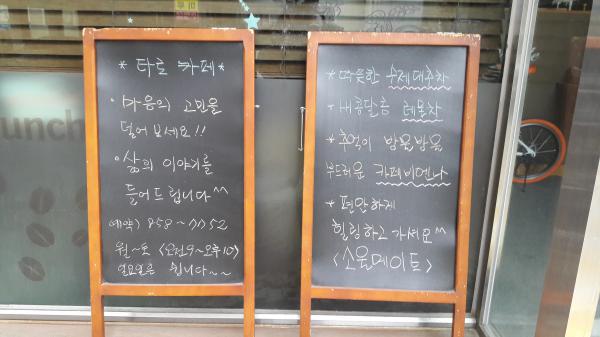 * 타로 카페 *
• 마음의 고민을
덜어 보세요!!
• 삶의 이야기를
들어드립니다^^
예약) 858~7752
월~토 <오전9~오후10>
일요일은 쉽니다~~
* 따뜻한 수제대추차
* 새콤달콤 레몬차
* 추억이 방울방울
부드러운 카페비엔나
* 편안하게
힐링하고 가세요^^
<소울메이트>
unch